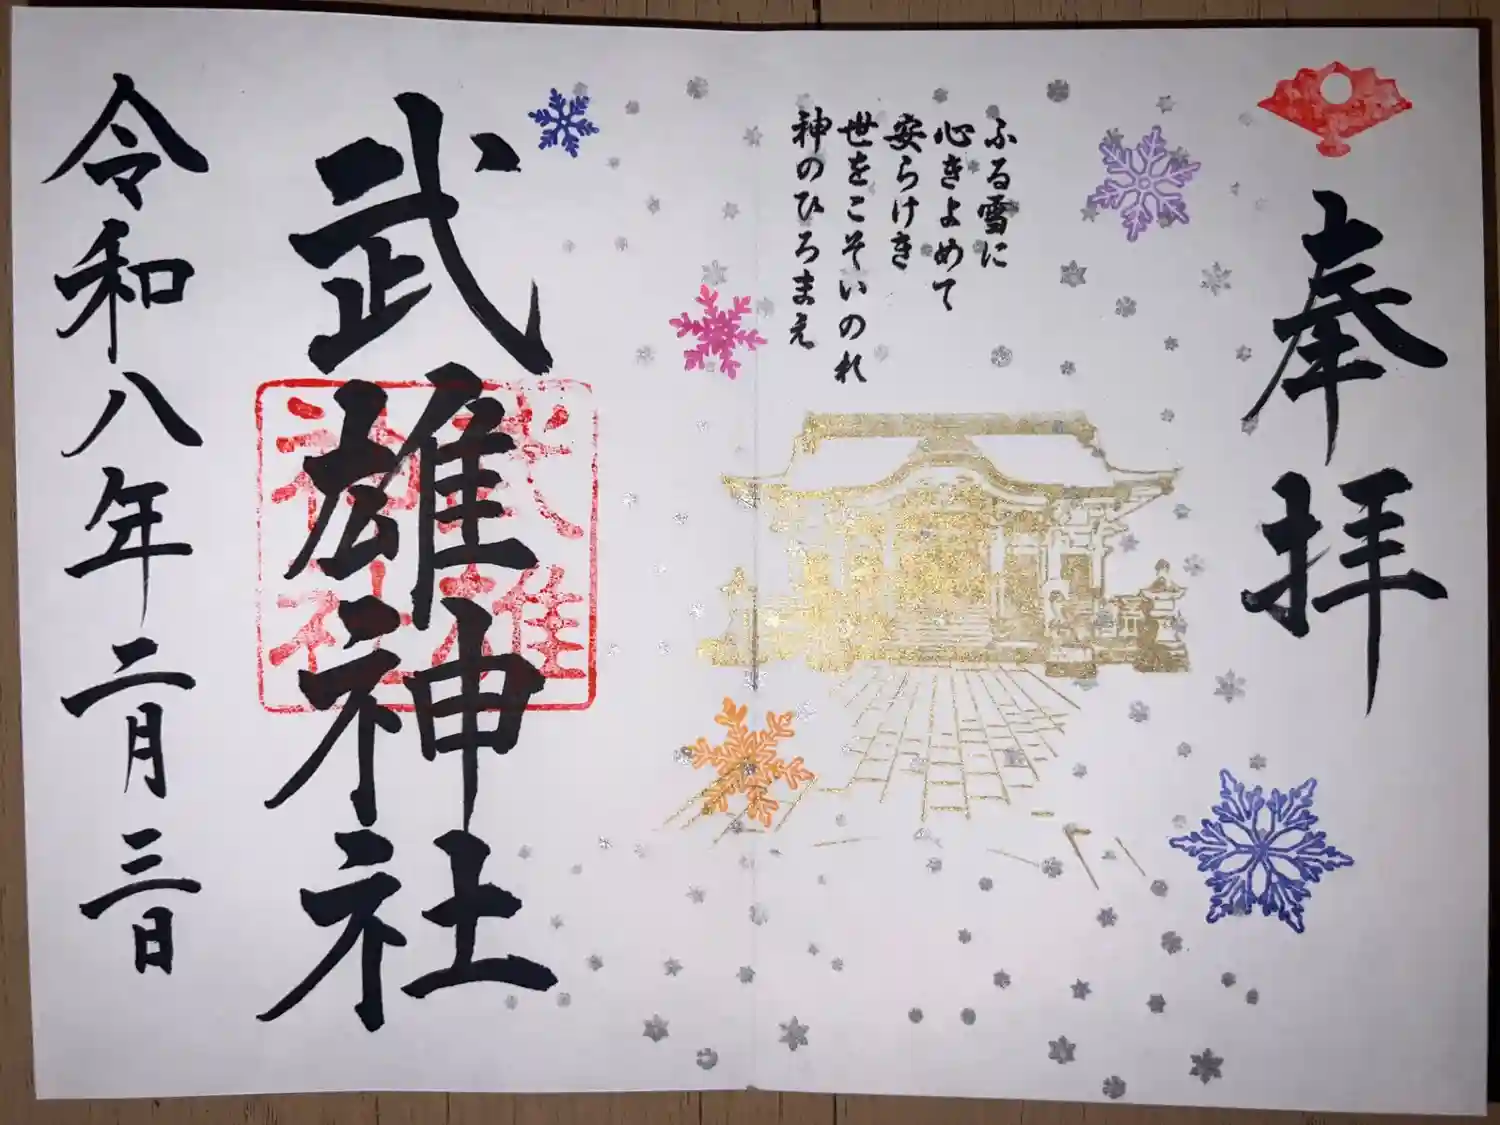 奉拝
ふる雪に
心きよめて
安らけき
世をこそいのれ
神のひろまえ
武雄神社
武雄
神社
令和八年二月三日